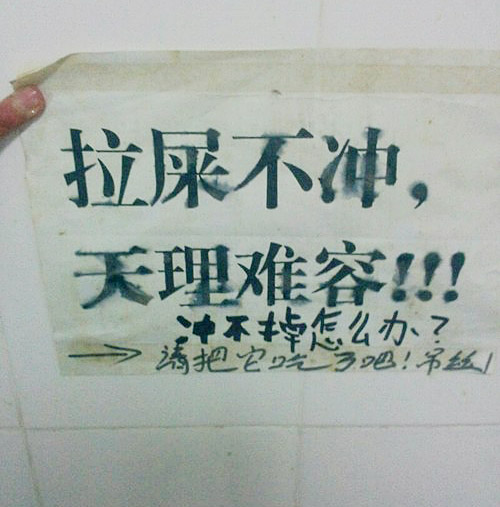 拉屎不冲，
天理难容!!!
冲不掉怎么办？
→请把它吃了吧！吊丝！